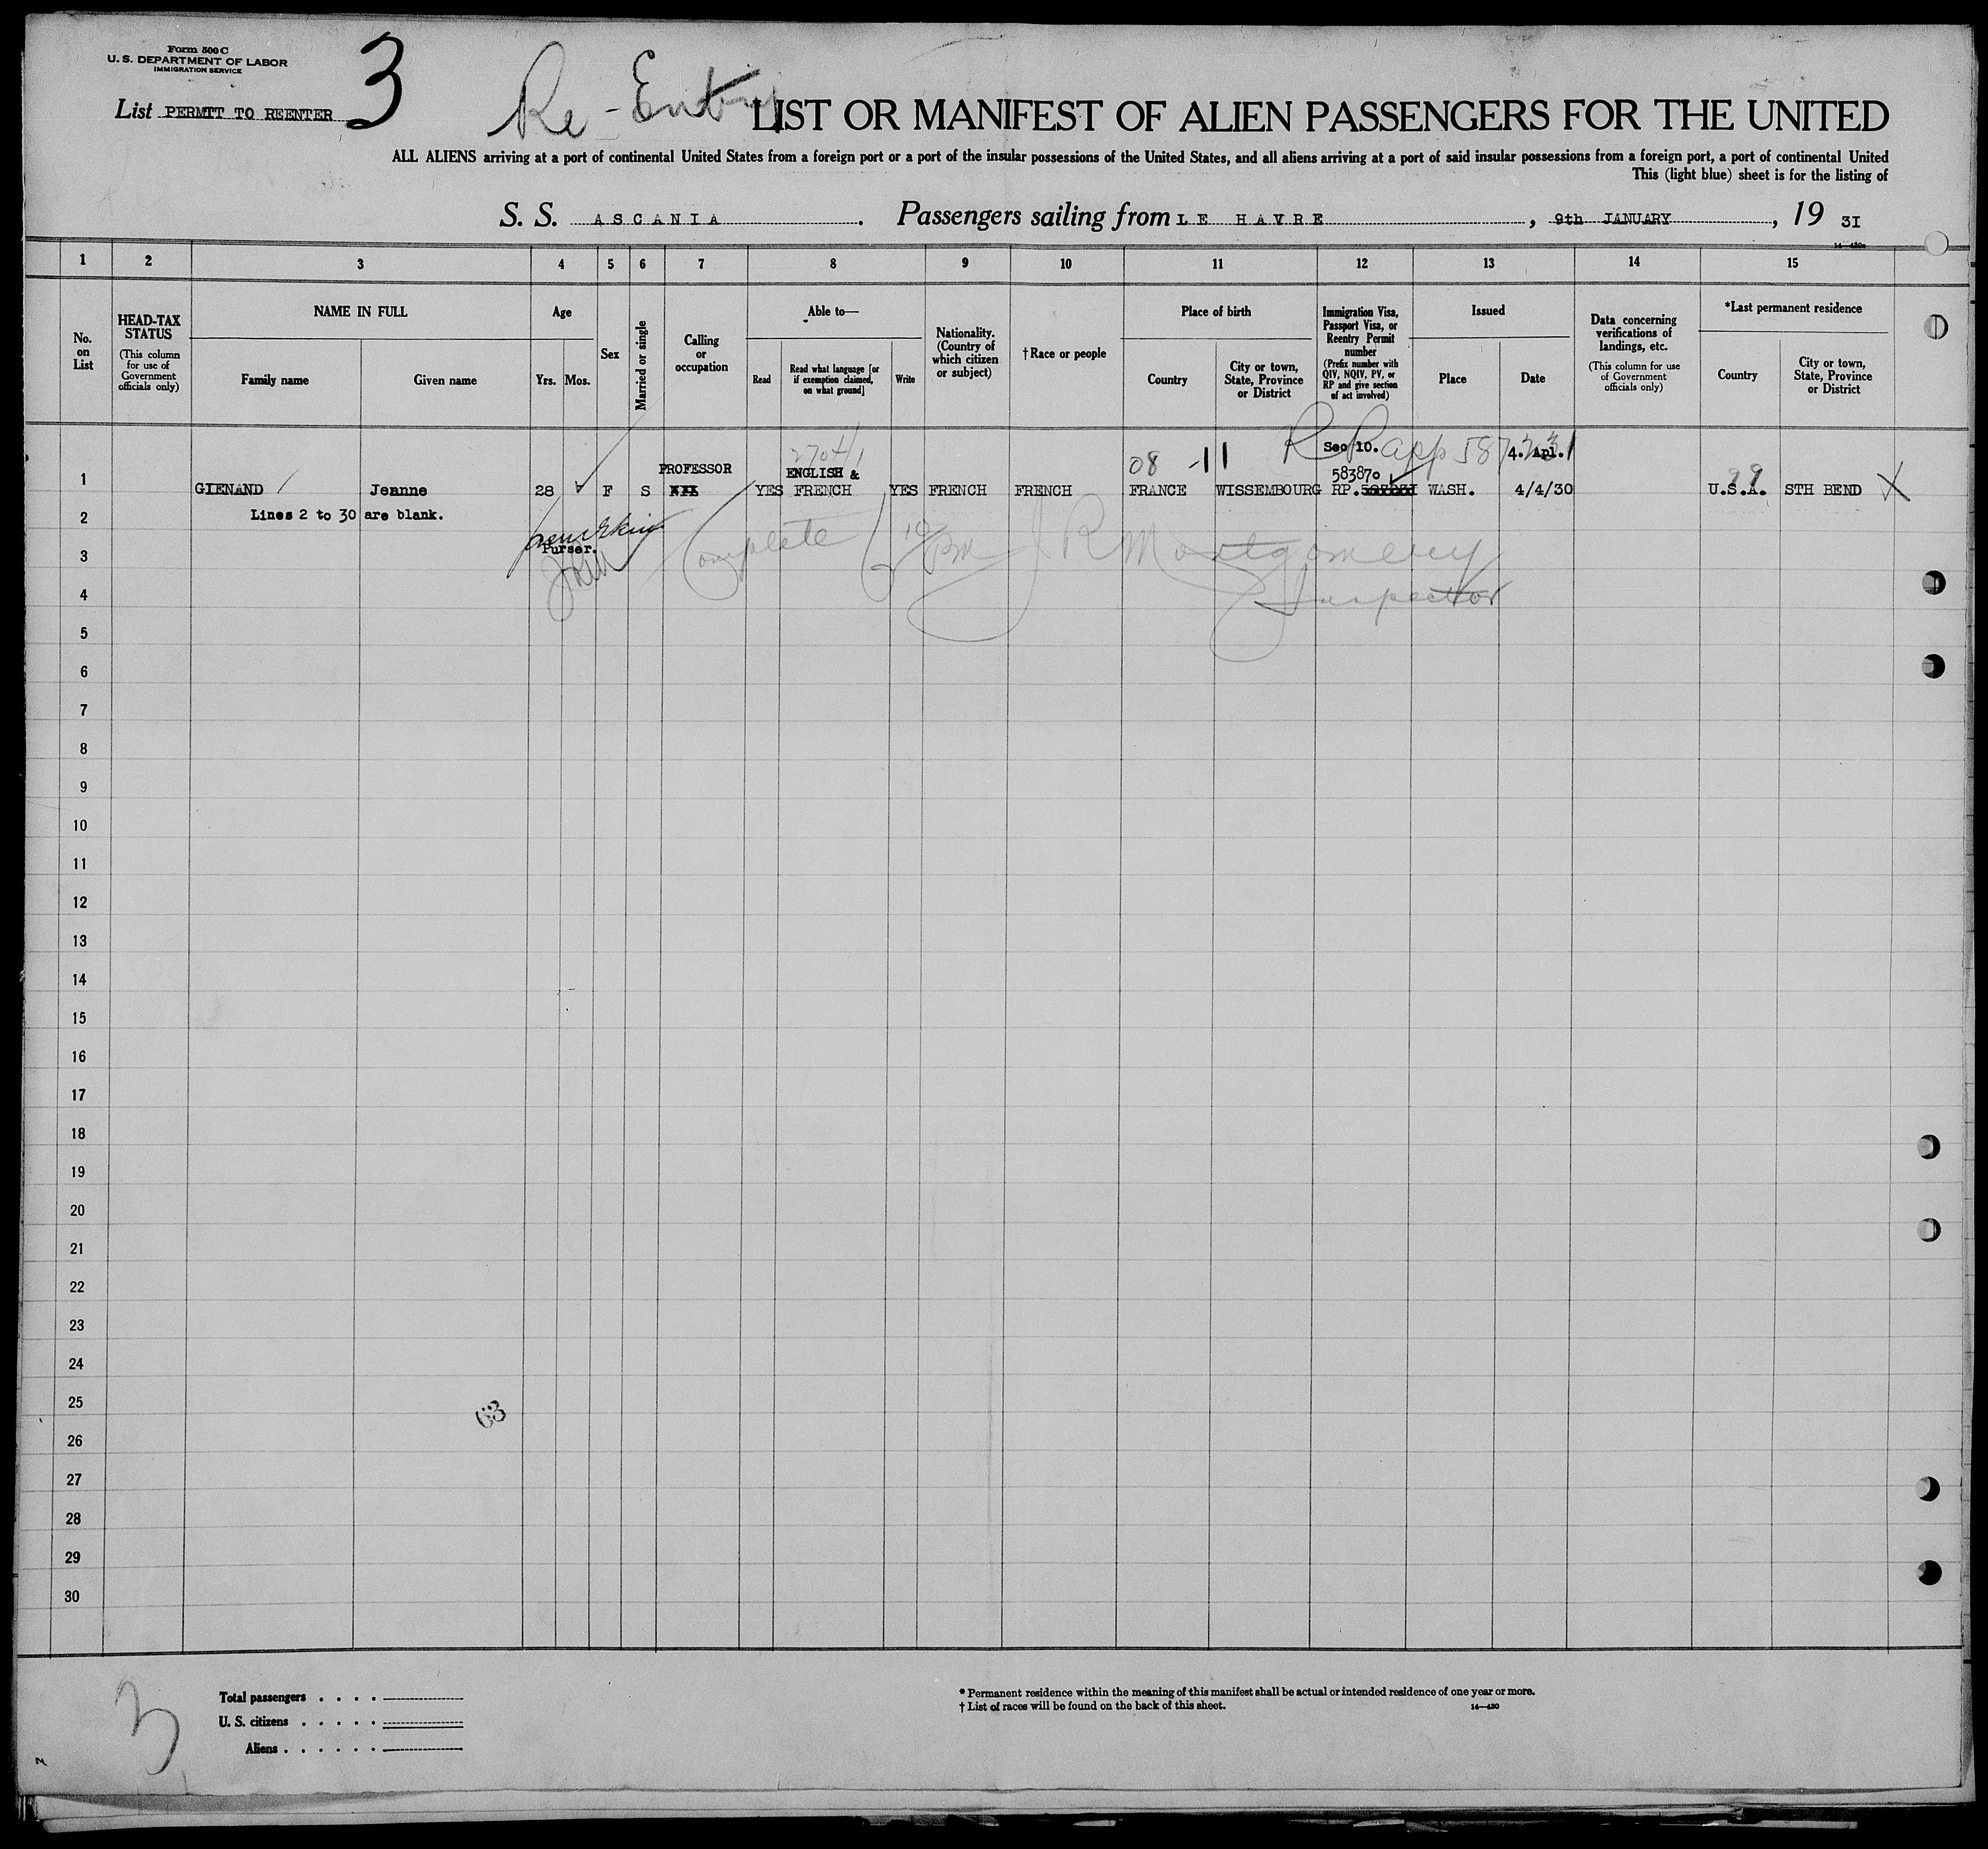 Form 500 C
U. S. DEPARTMENT OF LABOR
IMMIGRATION SERVICE
List PERMIT TO REENTER 3
Re-Entry
LIST OR MANIFEST OF ALIEN PASSENGERS FOR THE UNITED
ALL ALIENS arriving at a port of continental United States from a foreign port or a port of the insular possessions of the United States, and all aliens arriving at a port of said insular possessions from a foreign port, a port of continental United
This (light blue) sheet is for the listing of
S. S. ASCANIA. Passengers sailing from LE HAVRE, 9th JANUARY, 19 31
14—430a
1 2 3 4 5 6 7 8 9 10 11 12 13 14 15
No. on List
HEAD-TAX STATUS
(This column for use of Government officials only)
NAME IN FULL
Family name
Given name
Age
Yrs. Mos.
Sex
Married or single
Calling or occupation
Able to—
Read
Read what language [or if exemption claimed, on what ground]
Write
Nationality. (Country of which citizen or subject)
†Race or people
Place of birth
Country
City or town, State, Province or District
Immigration Visa, Passport Visa, or Reentry Permit number
(Prefix number with QIV, NQIV, PV, or RP and give section of act involved)
Issued
Place
Date
Data concerning verifications of landings, etc.
(This column for use of Government officials only)
*Last permanent residence
Country
City or town, State, Province or District
08 -11 RP app Sec 10. 4. Apl.
PROFESSOR ENGLISH & 583870 99
1 GIENAND Jeanne 28 F S YES FRENCH YES FRENCH FRENCH FRANCE WISSEMBOURG RP. WASH. 4/4/30 U.S.A. STH BEND X
2 Lines 2 to 30 are blank.
Purser.
Complete
JR Montgomery
Inspector
3
4
5
6
7
8
9
10
11
12
13
14
15
16
17
18
19
20
21
22
23
24
25
63
26
27
28
29
30
3
Total passengers . . . .
U. S. citizens . . . . .
Aliens . . . . . .
* Permanent residence within the meaning of this manifest shall be actual or intended residence of one year or more.
† List of races will be found on the back of this sheet. 14—430